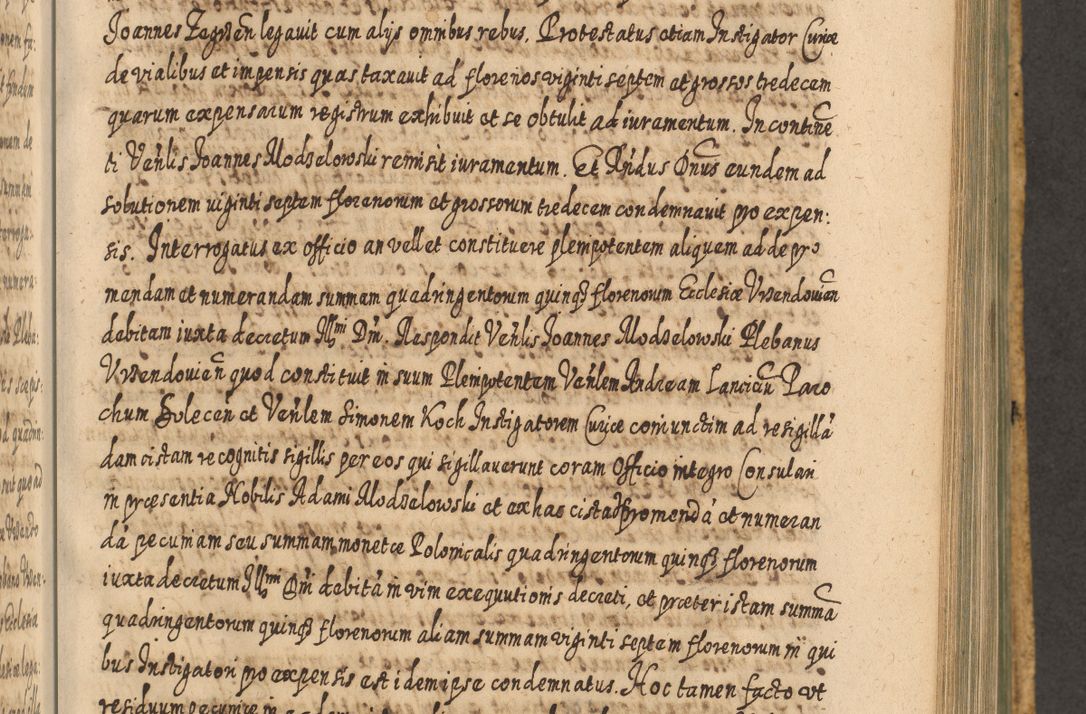 Joannes Zegrzen legauit cum alys omnibus rebus. Protestatus etiam Instigator Curiæ
de vialibus et impensis quas taxauit ad florenos viginti septem et grossos tredecem
quarum expensarum registrum exhibuit et se obtulit ad iuramentum. In contine
ti Venlis Joannes Modzelowski remisit iuramentum. Et Rndus Dnus eundem ad
solutionem viginti septem florenorum et grossorum tredecem condemnauit pro expen:
sis. Interrogatus ex officio an vellet constituere plempotentem aliquem ad depro
mendam et numerandam summam quadringentorum quinqz florenorum Ecclesiæ Vrzendouien
debitam iuxta decretum Illmi Dni. Respondit Venlis Joannes Modzelowski Plebanus
Vrzendouien quod constituit in suum Plenipotentem Venlem Andream Lanciciu Paro
chum Solecen et Venlem Simonem Koch Instigatorem Curiæ coniunctim ad resigillā
dam cistam recognitis sigillis per eos qui sigillauerunt coram Officio integro Consulari
in præsentia Nobilis Adami Modzelowski et ex hac cista depromendā et numeran
dā pecuniam seu summam monetæ Polonicalis quadringentorum quinqz florenorum
iuxta decretum Illmi Dni debitā in vim exequutionis decreti, et præter istam summā
quadringentorum quinqz florenorum aliam summam viginti septem florenorum in qui
bus Instigatori pro expensis est idem ipse condemnatus. Hoc tamen facto vt
residuum pecuniæ in